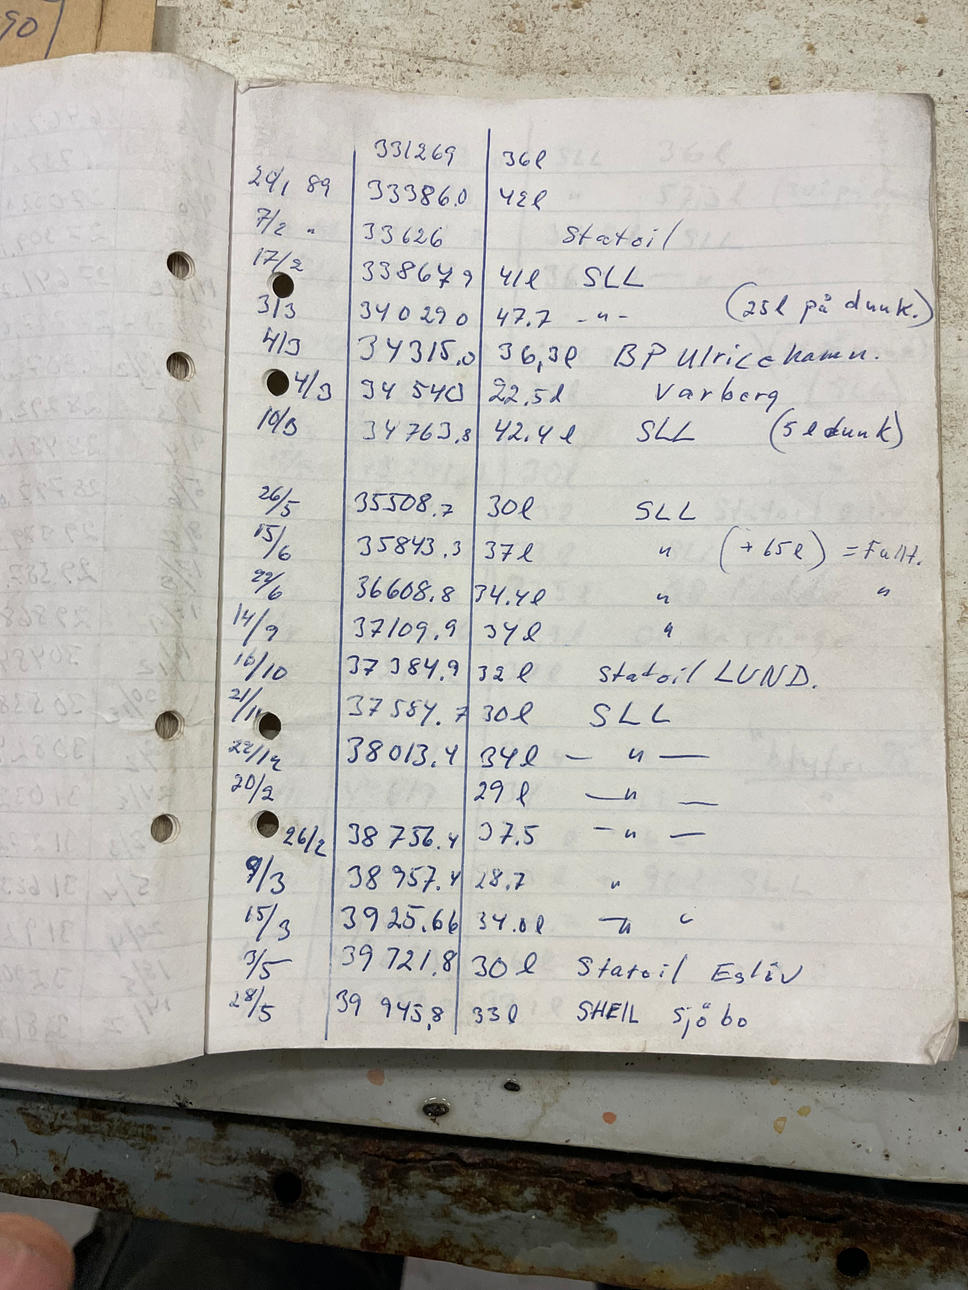 90
331269 36l
24/1 89 33386.0 42l
7/2 " 33626 Statoil
17/2 33867 9 41l SLL
3/3 34029 0 47.7 -"- (25l på dunk.)
4/3 34315.0 36,3l BP Ulricehamn.
4/3 34 540 22.5l Varberg
10/3 34763.8 42.4l SLL (5l dunk)
26/5 35508.7 30l SLL
15/6 35843.3 37l " (+65l) = Fullt.
22/6 36608.8 34.4l " "
14/9 37109.9 34l "
16/10 37384.9 32l Statoil LUND.
37584.7 30l SLL
22/12 38013.4 34l — " —
20/2 29l — " —
26/2 38756.4 37.5 — " —
9/3 38957.4 28.7 "
15/3 3925.66 34.0l — " "
3/5 39721.8 30l Statoil Eslöv
28/5 39 945,8 33l SHELL Sjöbo